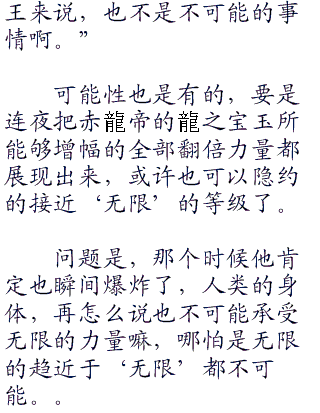 王来说，也不是不可能的事
情啊。”
可能性也是有的，要是
连夜把赤龍帝的龍之宝玉所
能够增幅的全部翻倍力量都
展现出来，或许也可以隐约
的接近‘无限’的等级了。
问题是，那个时候他肯
定也瞬间爆炸了，人类的身
体，再怎么说也不可能承受
无限的力量嘛，哪怕是无限
的趋近于‘无限’都不可
能。。